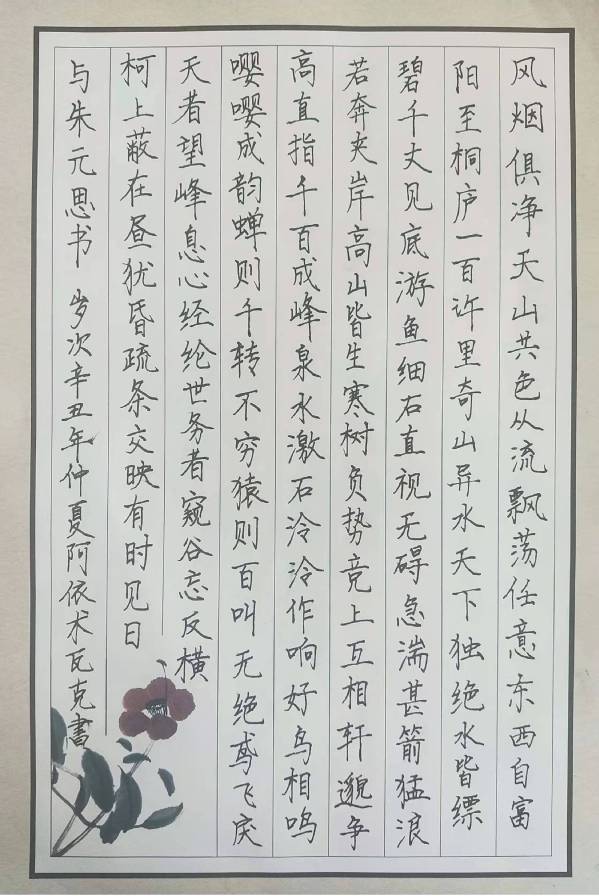 风烟俱净天山共色从流飘荡任意东西自富
阳至桐庐一百许里奇山异水天下独绝水皆缥
碧千丈见底游鱼细石直视无碍急湍甚箭猛浪
若奔夹岸高山皆生寒树负势竞上互相轩邈争
高直指千百成峰泉水激石泠泠作响好鸟相鸣
嘤嘤成韵蝉则千转不穷猿则百叫无绝鸢飞戾
天者望峰息心经纶世务者窥谷忘反横
柯上蔽在昼犹昏疏条交映有时见日
与朱元思书 岁次辛丑年仲夏阿依术瓦克書